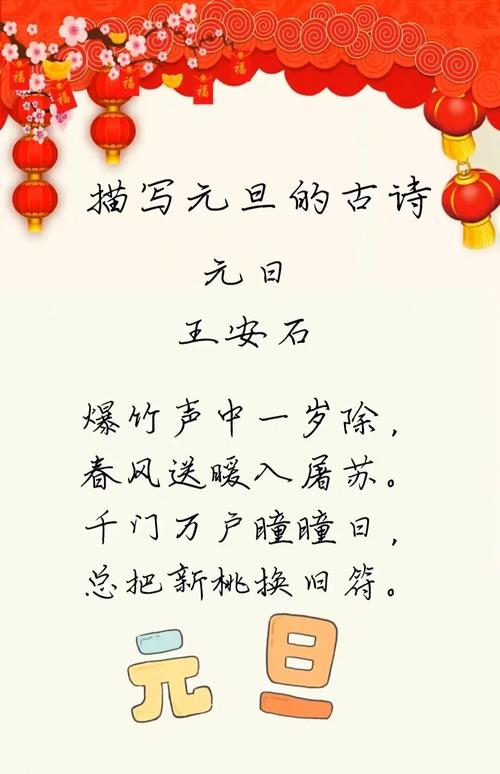 福
福
福
福
描写元旦的古诗
元日
王安石
爆竹声中一岁除，
春风送暖入屠苏。
千门万户瞳瞳日，
总把新桃换旧符。
元旦